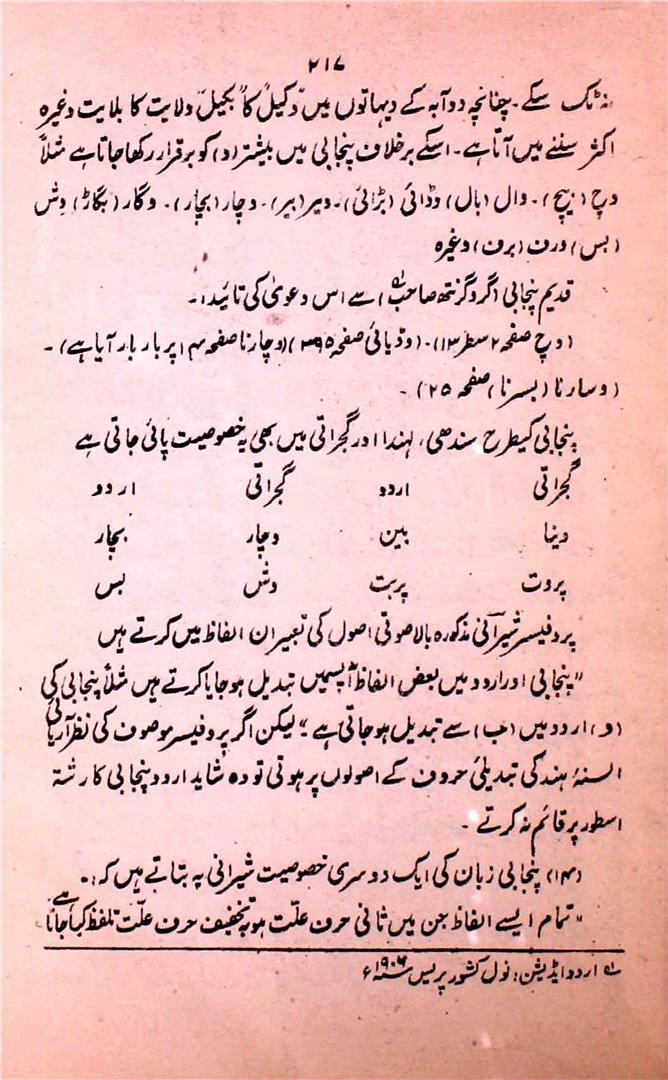 ۲۱۷
نہ ٹک سکے۔ چنانچہ دوآبہ کے دیہاتوں میں "وکیل" کا "بکیل" ولایت کا بلایت وغیرہ
اکثر سننے میں آتا ہے۔ اسکے برخلاف پنجابی میں بیشتر (و) کو برقرار رکھا جاتا ہے مثلاً
وچ (بیچ)۔ وال (بال) وڈائی (بڑائی)۔ ویر (بیر)۔ وچار (بچار)۔ وگار (بگاڑ) وِش
(بس) ورف (برف) وغیرہ
قدیم پنجابی (گروگرنتھ صاحب لہ) سے اس دعویٰ کی تائید:۔
(وچ صفحہ ۲ سطر ۱۳)۔ (وڈیائی صفحہ ۳۹۵) (وچارنا صفحہ ۱۴ پر بار بار آیا ہے)۔
(وسارنا (بسرنا) صفحہ ۲۵)۔
پنجابی کیطرح سندھی، لہندا اور گجراتی میں بھی یہ خصوصیت پائی جاتی ہے
گجراتی اردو گجراتی اردو
وینا بین وچار بچار
پروت پربت وش بس
پروفیسر شیرانی مذکورہ بالا صوتی اصول کی تعبیر ان الفاظ میں کرتے ہیں
"پنجابی اور اردو میں بعض الفاظ آپسمیں تبدیل ہو جایا کرتے ہیں مثلاً پنجابی کی
(و) اردو میں (ب) سے تبدیل ہو جاتی ہے" لیکن اگر پروفیسر موصوف کی نظر آریائی
السنۂ ہند کی تبدیلئ حروف کے اصولوں پر ہوتی تو وہ شاید اردو پنجابی کا رشتہ
اسطور پر قائم نہ کرتے۔
(۱۴) پنجابی زبان کی ایک دوسری خصوصیت شیرانی یہ بتاتے ہیں کہ:۔
"تمام ایسے الفاظ جن میں ثانی حرف علّت ہو بہ تخفیف حرف علّت تلفظ کیا جاتا ہے
لہ اردو ایڈیشن: نول کشور پریس سنہ ۱۹۰۶ء